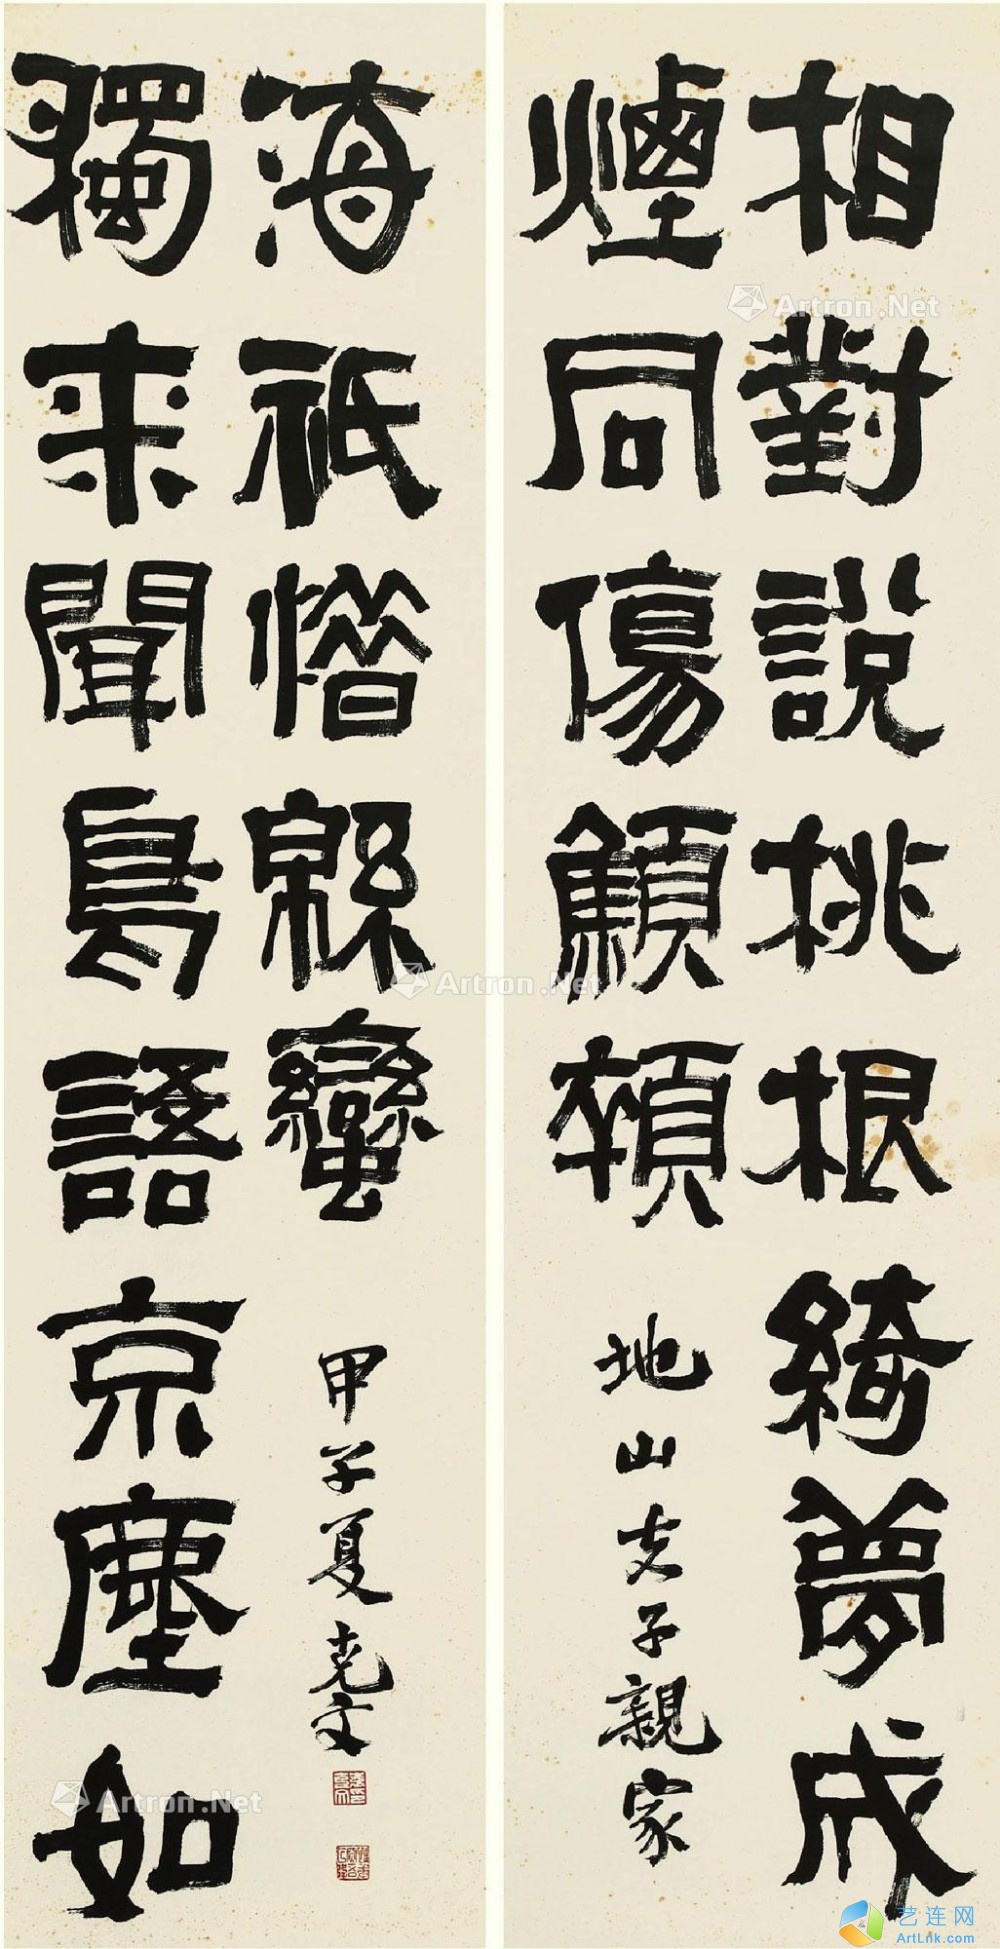 相對說桃根綺夢成
煙同傷顦顇
地山夫子親家
獨來聞鳥語京塵如
海祇憯緜蠻
甲子夏克文
Artron.Net
Artron.Net
Artron.Net
艺连网
ArtLnk.com